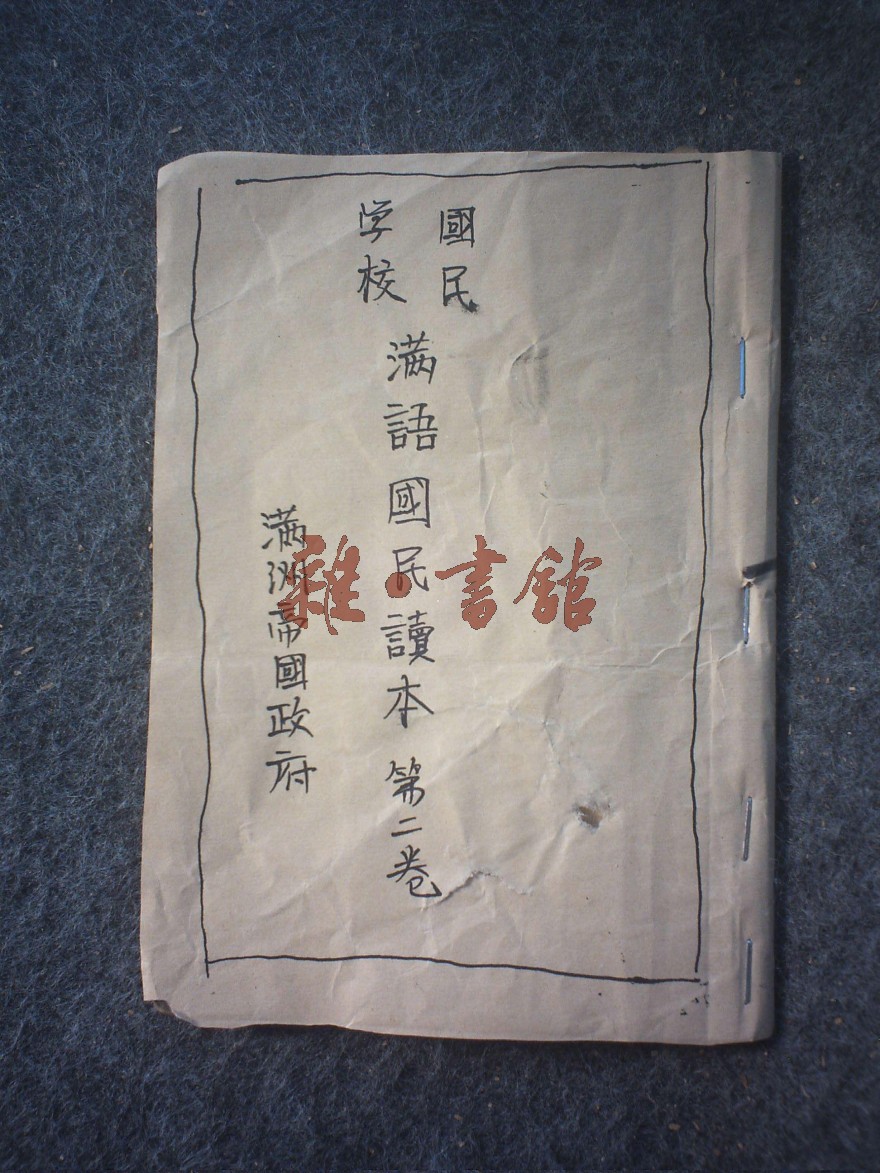 國民
学校
满語國民讀本 第二卷
满洲帝國政府
雜·書館